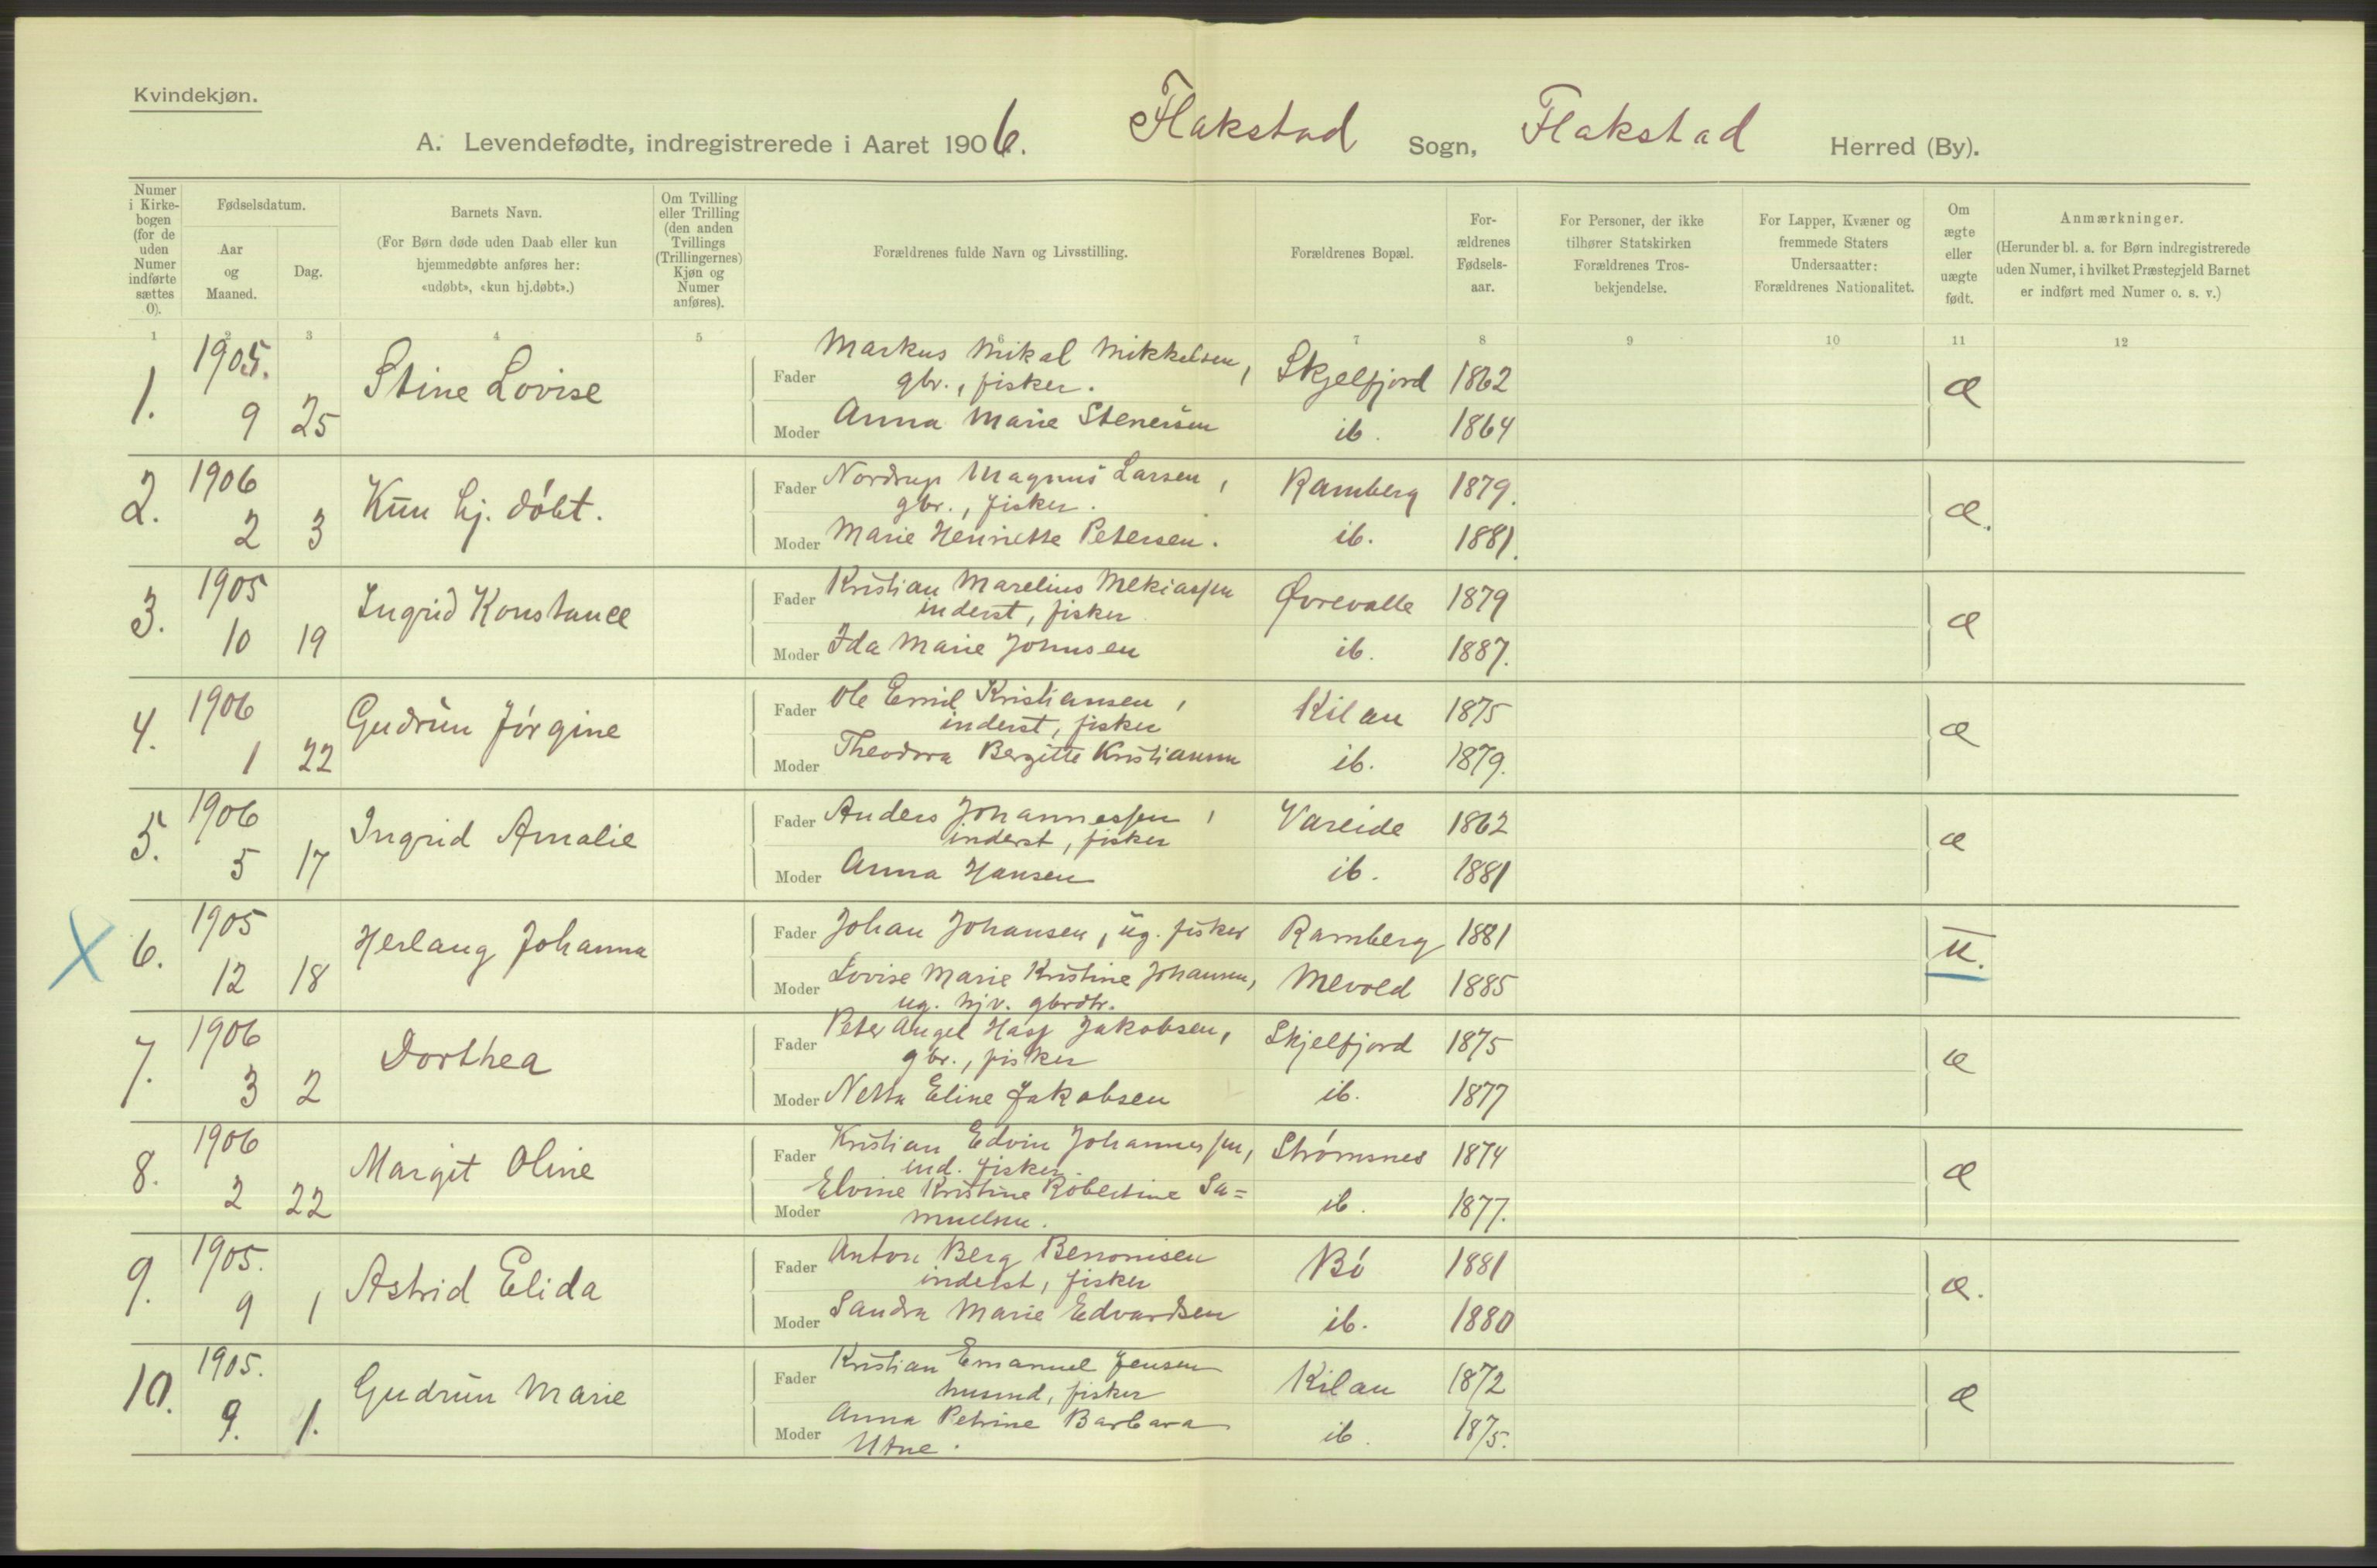 Kvindekjøn.
A. Levendefødte, indregistrerede i Aaret 1906. Flakstad Sogn, Flakstad Herred (By).
Numer i Kirkebogen (for de uden Numer indførte sættes 0).
Fødselsdatum.
Aar og Maaned.
Dag.
Barnets Navn.
(For Børn døde uden Daab eller kun hjemmedøbte anføres her: «udøbt», «kun hj.døbt».)
Om Tvilling eller Trilling (den anden Tvillings (Trillingernes) Kjøn og Numer anføres).
Forældrenes fulde Navn og Livsstilling.
Forældrenes Bopæl.
Forældrenes Fødselsaar.
For Personer, der ikke tilhører Statskirken Forældrenes Trosbekjendelse.
For Lapper, Kvæner og fremmede Staters Undersaatter: Forældrenes Nationalitet.
Om ægte eller uægte født.
Anmærkninger.
(Herunder bl. a. for Børn indregistrerede uden Numer, i hvilket Præstegjeld Barnet er indført med Numer o. s. v.)
1 2 3 4 5 6 7 8 9 10 11 12
1. 1905. 9 25 Stine Lovise
Fader Markus Mikal Mikkelsen, gbr., fisker. Skjelfjord 1862 æ
Moder Anna Marie Stenersen ib. 1864
2. 1906 2 3 Kun hj. døbt.
Fader Nordrup Magnus Larsen, gbr., fisker. Ramberg 1879. æ.
Moder Marie Henriette Petersen. ib. 1881.
3. 1905 10 19 Ingrid Konstance
Fader Kristian Marelius Mekiassen inderst, fisker Øvrevalle 1879 æ
Moder Ida Marie Johnsen ib. 1887.
4. 1906 1 22 Gudrun Jørgine
Fader Ole Emil Kristiansen, inderst, fisker Kilan 1875 æ
Moder Theodora Bergitte Kristiansen ib. 1879.
5. 1906 5 17 Ingrid Amalie
Fader Anders Johannessen, inderst, fisker Vareide 1862 æ
Moder Anna Hansen ib. 1881
X 6. 1905 12 18 Herlaug Johanna
Fader Johan Johansen, ug. fisker Ramberg 1881 u.
Moder Lovise Marie Kristine Johansen, ug. hjv. gbrdtr. Mevold 1885
7. 1906 3 2 Dorthea
Fader Peter Angel Jakobsen, gbr., fisker Skjelfjord 1875 æ
Moder Netta Eline Jakobsen ib. 1877
8. 1906 2 22 Margit Oline
Fader Kristian Edvin Johannessen, ind. fisker. Strømsnes 1874 æ
Moder Elvine Kristine Robertine Sa=
muelsen. ib. 1877.
9. 1905. 9 1 Astrid Elida
Fader Anton Berg Benonisen inderst, fisker Bø 1881 æ.
Moder Sandra Marie Edvardsen ib. 1880
10. 1905. 9. 1. Gudrun Marie
Fader Kristian Emanuel Jensen husmd, fisker Kilan 1872 æ
Moder Anna Petrine Barbara
Utne. ib. 1875.